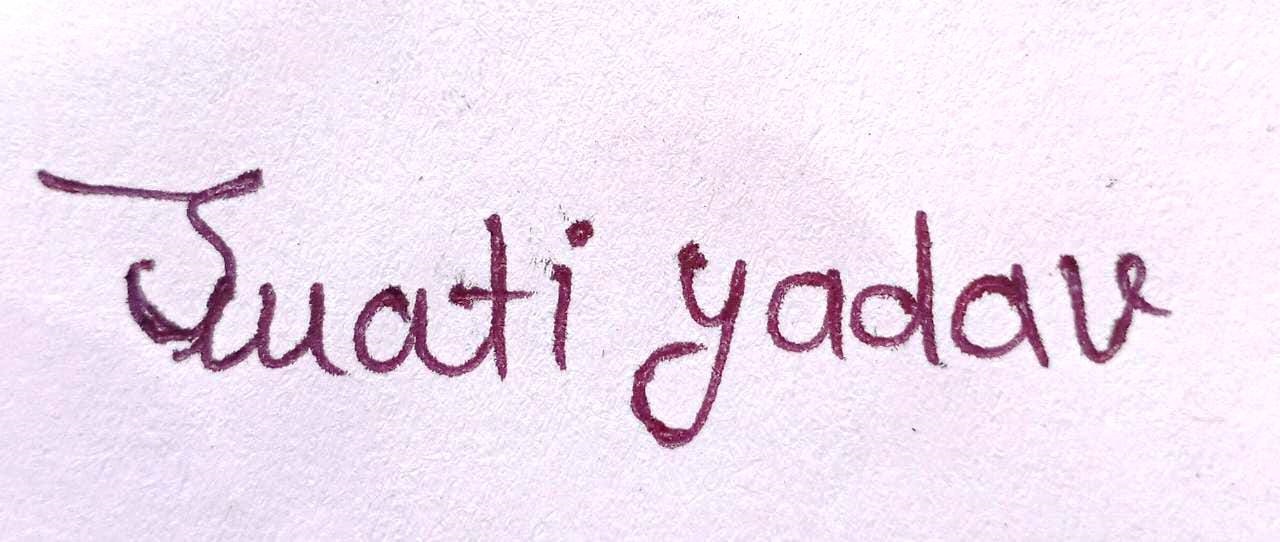 Jwati yadav